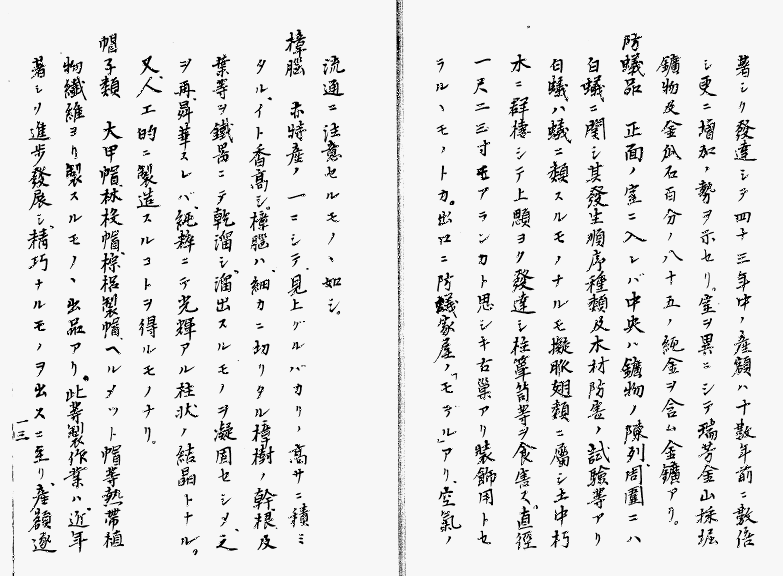 著シク發達シテ四十三年中ノ産額ハ十數年前ニ數倍
シ更ニ増加ノ勢ヲ示セリ。室ヲ異ニシテ瑞芳金山採掘
鑛物及金瓜石百分ノ八十五ノ純金ヲ含ム金鑛アリ。
防蟻品 正面ノ室ニ入レバ中央ハ鑛物ノ陳列、周圍ニハ
白蟻ニ關シ其發生順序種類及木材防害ノ試驗等アリ
白蟻ハ蟻ニ類スルモノナルモ擬脈翅類ニ屬シ土中朽
木ニ群棲シテ上顎ヨク發達シ柱簞笥等ヲ食害ス。直徑
一尺二三寸モアランカト思シキ古巣アリ裝飾用トセ
ラルヽモノトカ。出口ニ防蟻家屋ノ「モデル」アリ、空氣ノ
流通ニ注意セルモノヽ如シ。
樟腦 亦特産ノ一ニシテ、見上グルバカリノ高サニ積ミ
タル、イト香高シ。樟腦ハ細カニ切リタル樟樹ノ幹根及
葉等ヲ鐵器ニテ乾溜シ、溜出スルモノヲ凝固セシメ、之
ヲ再昇華スレバ純粹ニテ光輝アル柱狀ノ結晶トナル。
又、人工的ニ製造スルコトヲ得ルモノナリ。
帽子類 大甲帽、林投帽、棕梠製帽、ヘルメット帽等熱帶植
物纖維ヨリ製スルモノヽ出品アリ。此等製作業ハ近年
著シク進步發展シ、精巧ナルモノヲ出スニ至リ、産額逐
一三